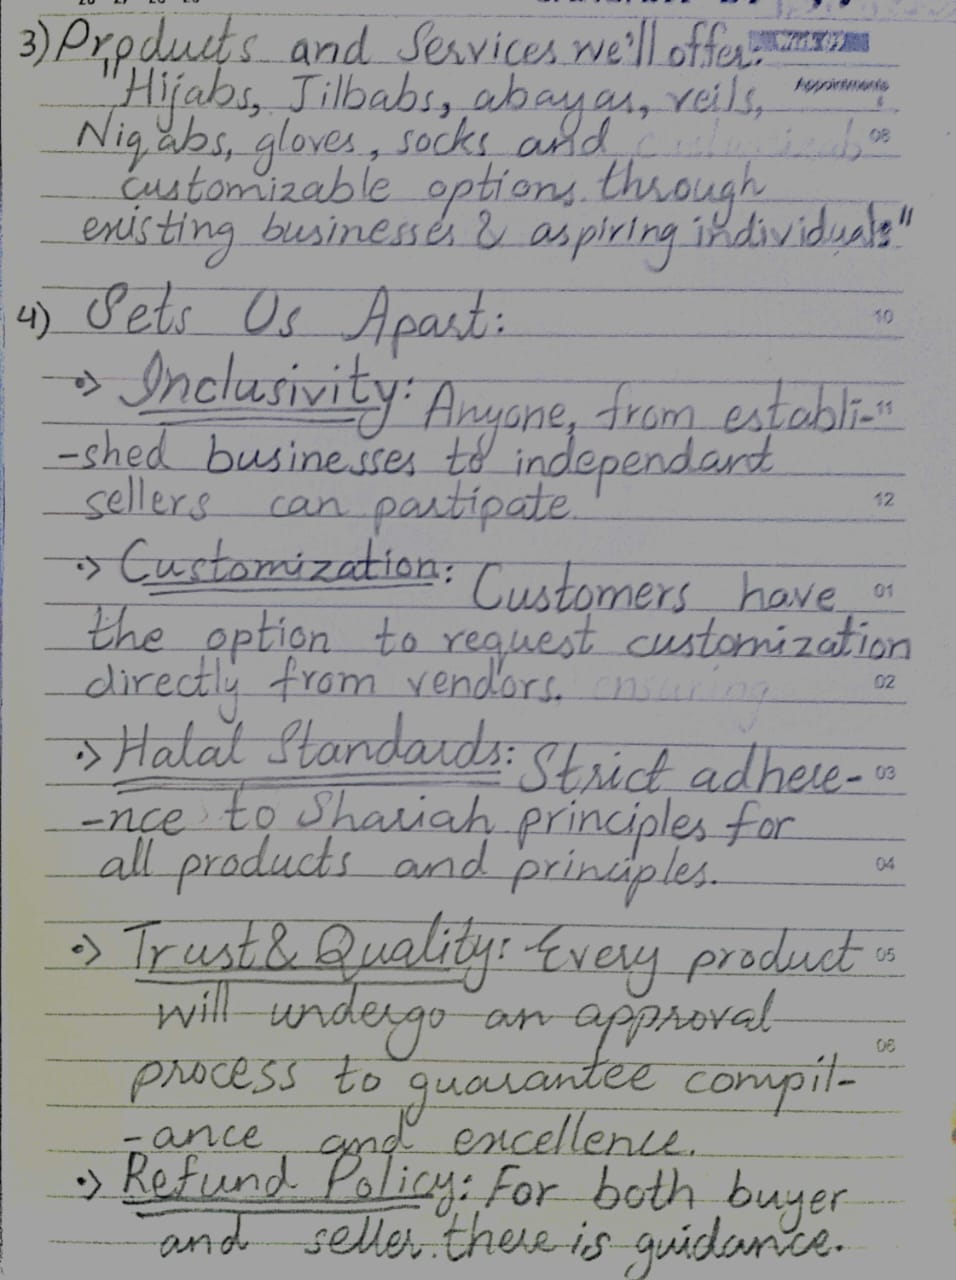 3) Products and Services we'll offer:
Appointments
"Hijabs, Jilbabs, abayas, veils,
Niqabs, gloves, socks and
08
customizable options through
existing businesses & aspiring individuals"
4) Sets Us Apart:
10
·> Inclusivity: Anyone, from establi-
11
-shed businesses to independant
sellers can partipate.
12
·> Customization: Customers have
01
the option to request customization
directly from vendors. ensuring
02
·> Halal Standards: Strict adhere-
03
-nce to Shariah principles for
all products and principles.
04
·> Trust & Quality: Every product
05
will undergo an approval
06
process to guarantee compil-
-ance and excellence.
·> Refund Policy: For both buyer
and seller there is guidance.